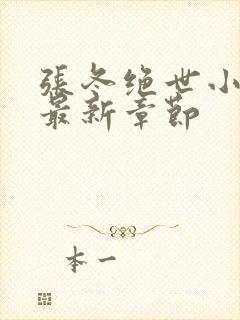 張冬绝世小
最新章節
本一